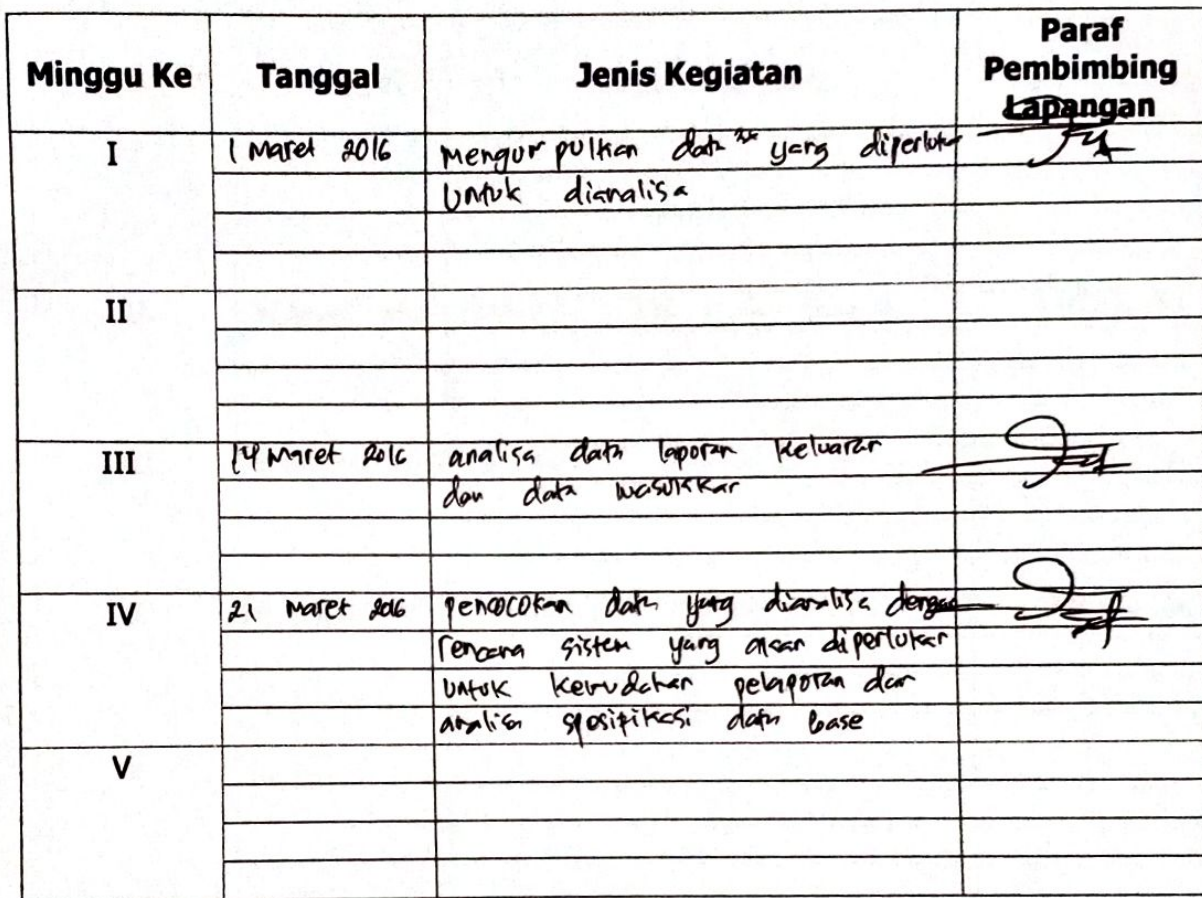 Minggu Ke Tanggal Jenis Kegiatan Paraf Pembimbing Lapangan
I 1 Maret 2016 Mengumpulkan data yang diperlukan
untuk dianalisa
II
III 14 Maret 2016 analisa data laporan keluaran
dan data masukkan
IV 21 Maret 2016 pencocokan data yang dianalisa dengan
rencana sistem yang akan diperlukan
untuk kemudahan pelaporan dan
analisa spesipikasi data base
V